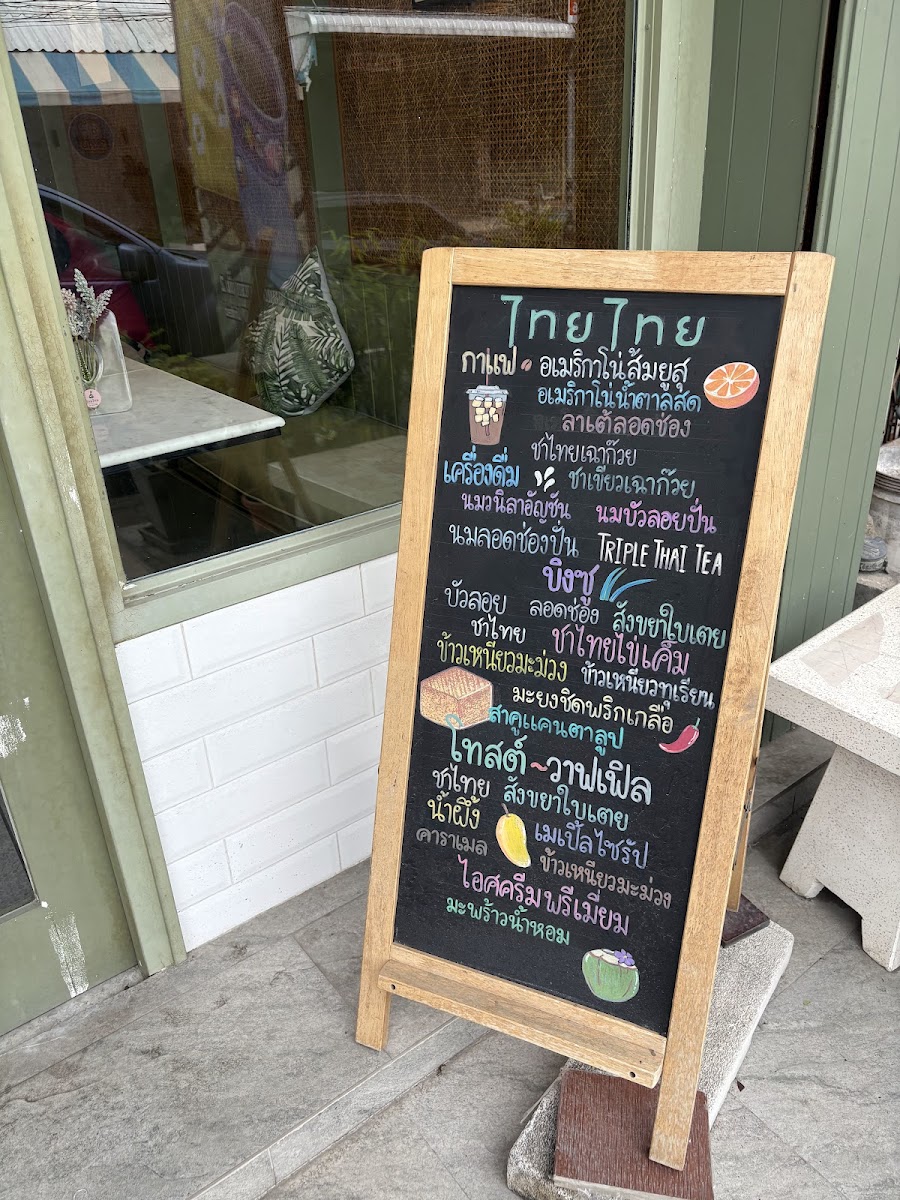 ไทยไทย
กาแฟ อเมริกาโน่ส้มยูสุ
อเมริกาโน่น้ำตาลสด
ลาเต้ลอดช่อง
ชาไทยเฉาก๊วย
เครื่องดื่ม ชาเขียวเฉาก๊วย
นมวนิลาอัญชัน นมบัวลอยปั่น
นมลอดช่องปั่น TRIPLE THAI TEA
บิงซู
บัวลอย ลอดช่อง สังขยาใบเตย
ชาไทย ชาไทยไข่เค็ม
ข้าวเหนียวมะม่วง ข้าวเหนียวทุเรียน
มะยงชิดพริกเกลือ
สาคูแคนตาลูป
โทสต์ ~ วาฟเฟิล
ชาไทย สังขยาใบเตย
น้ำผึ้ง เมเปิ้ลไซรัป
คาราเมล ข้าวเหนียวมะม่วง
ไอศครีมพรีเมียม
มะพร้าวน้ำหอม